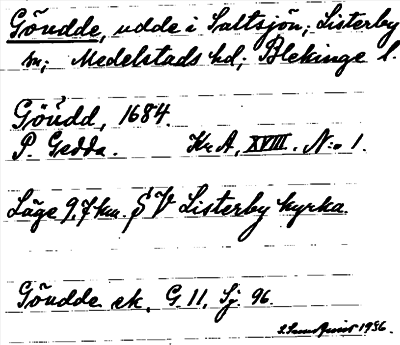 Göudde, udde i Saltsjön, Listerby
sn; Medelstads hd; Blekinge l.
Göudd, 1684.
P. Gedda. Kr. A, XVIII. N:o 1.
Läge 9,7 km. SV Listerby kyrka.
Göudde ek. G 11. Sj. 96.
1936.